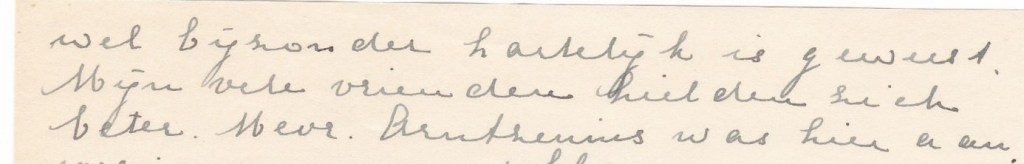 wel byzonder hartelyk is geweest.
Mijn vele vrienden hielden zich
beter. Mevr. Arntzenius was hier aan